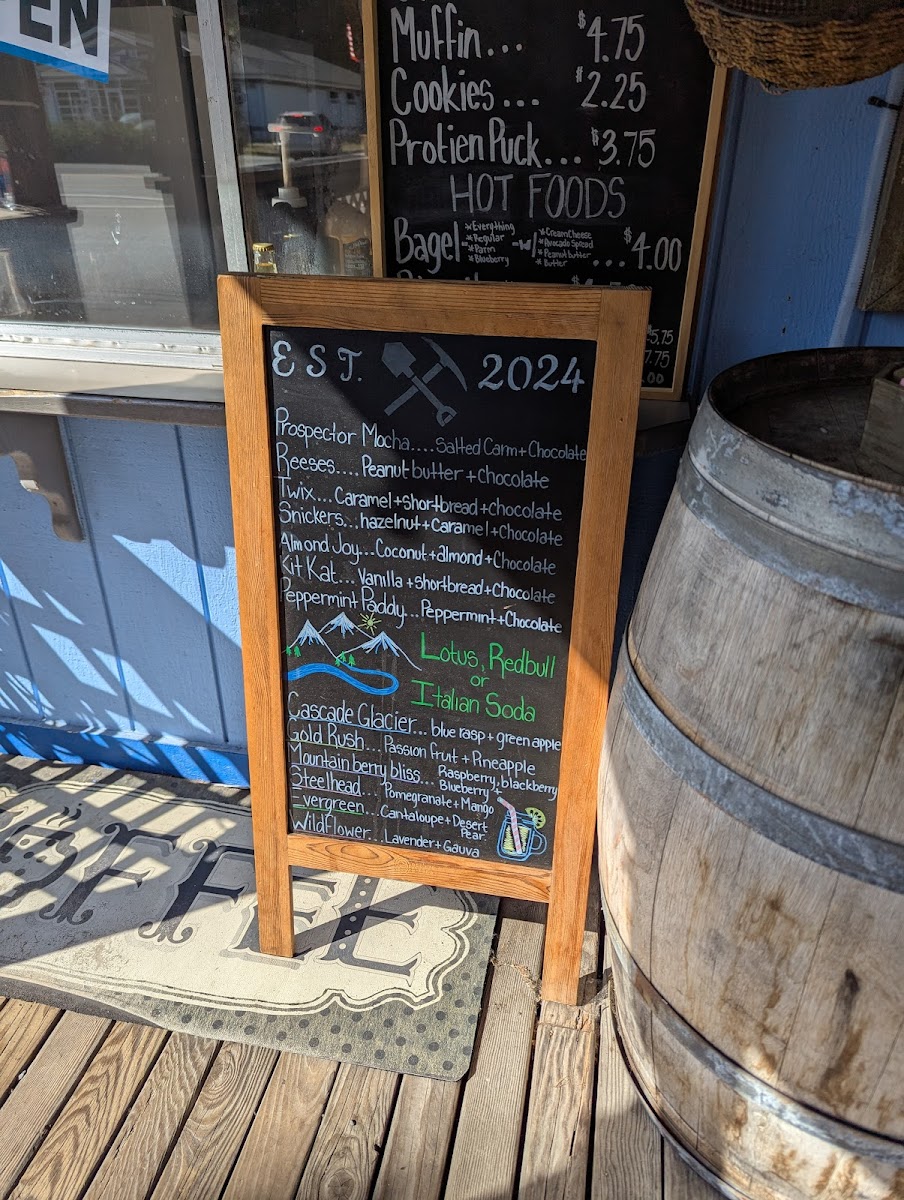 EN
Muffin... $4.75
Cookies... $2.25
Protien Puck... $3.75
HOT FOODS
Bagel- *Everything *Regular *Parm *Blueberry -w/ *Cream Cheese *Avocado Spread *Peanut butter *Butter ...$4.00
5.75
7.75
.00
EST. 2024
Prospector Mocha.... Salted Carm + Chocolate
Reeses.... Peanut butter + Chocolate
Twix... Caramel + shortbread + chocolate
Snickers... hazelnut + Caramel + Chocolate
Almond Joy... Coconut + almond + Chocolate
Kit Kat... Vanilla + shortbread + Chocolate
Peppermint Paddy... Peppermint + Chocolate
Lotus, Redbull
or
Italian Soda
Cascade Glacier... blue rasp + green apple
Gold Rush... Passion fruit + Pineapple
Mountain berry bliss... Raspberry, blackberry Blueberry
Steelhead... Pomegranate + Mango
Evergreen... Cantaloupe + Desert Pear
WildFlower... Lavender + Gauva
COFFEE